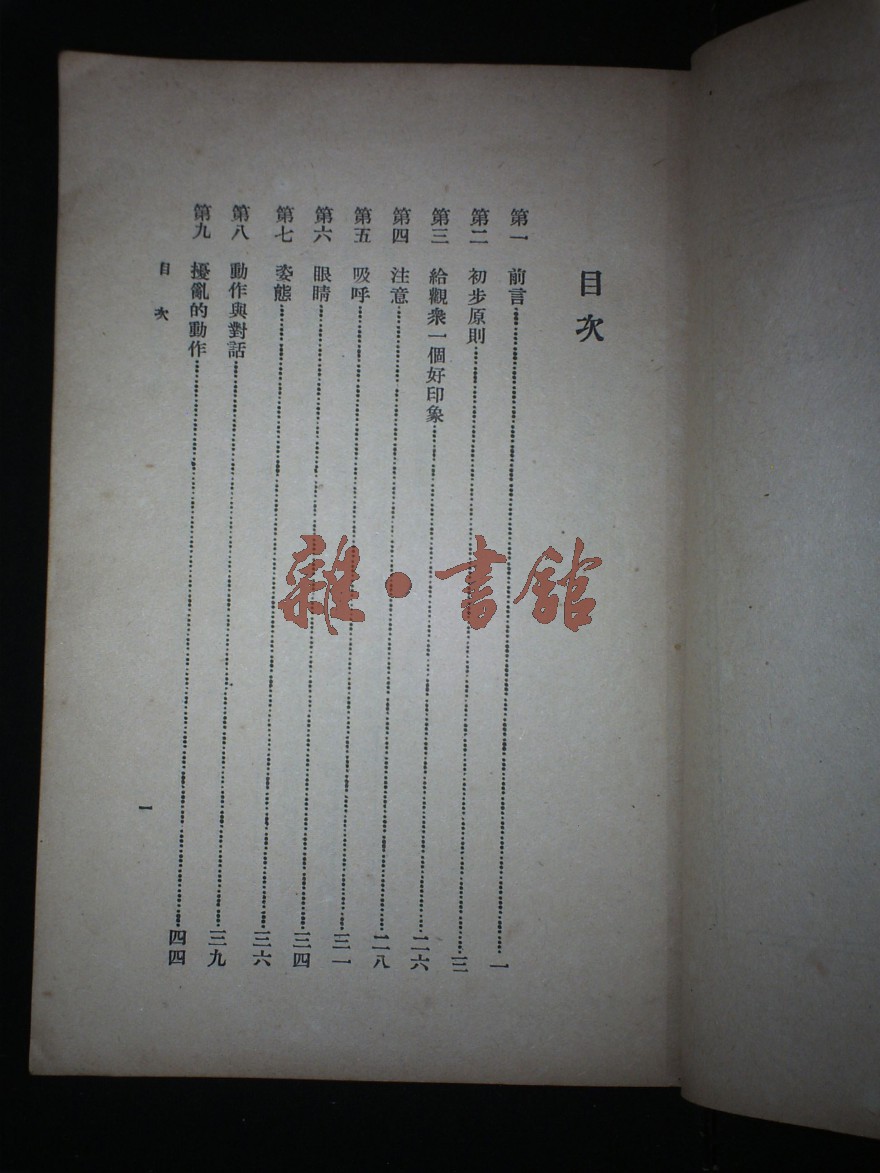 目次
第一 前言……一
第二 初步原則……三
第三 給觀衆一個好印象……二六
第四 注意……二八
第五 吸呼……三一
第六 眼睛……三四
第七 姿態……三六
第八 動作與對話……三九
第九 擾亂的動作……四四
目次
一
雜·書館